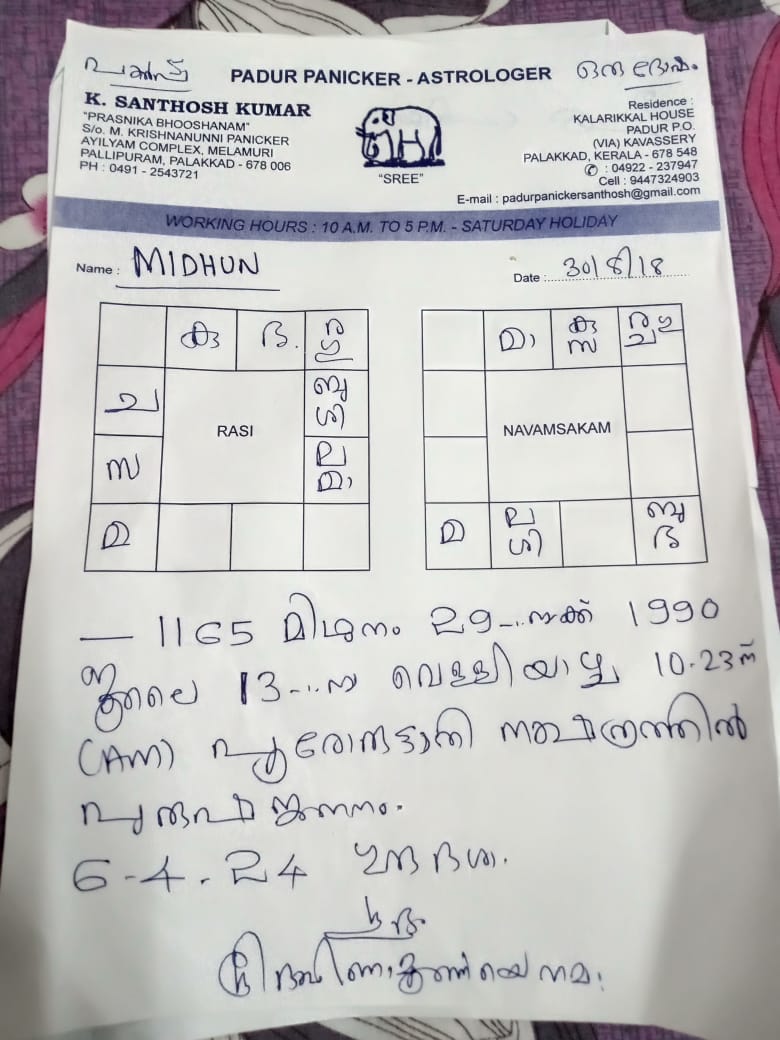 PADUR PANICKER - ASTROLOGER
K. SANTHOSH KUMAR
"PRASNIKA BHOOSHANAM"
S/o. M. KRISHNANUNNI PANICKER
AYILYAM COMPLEX, MELAMURI
PALLIPURAM, PALAKKAD - 678 006
PH : 0491 - 2543721
"SREE"
Residence :
KALARIKKAL HOUSE
PADUR P.O.
(VIA) KAVASSERY
PALAKKAD, KERALA - 678 548
✆ : 04922 - 237947
Cell : 9447324903
E-mail : padurpanickersanthosh@gmail.com
WORKING HOURS : 10 A.M. TO 5 P.M. - SATURDAY HOLIDAY
Name : MIDHUN
Date : 30/8/18
കു
ച
ബു
ശി
RASI
സ
ല
മാ
മ
മാ
കു
സ
NAVAMSAKAM
മ
ല
ശി
ബു
— 1165 മിഥുനം 29 1990
ജൂലൈ 13 വെള്ളിയാഴ്ച 10.23
(AM) പൂരോരുട്ടാതി നക്ഷത്രത്തിൽ
ജനനം.
6-4.24 ദശ.